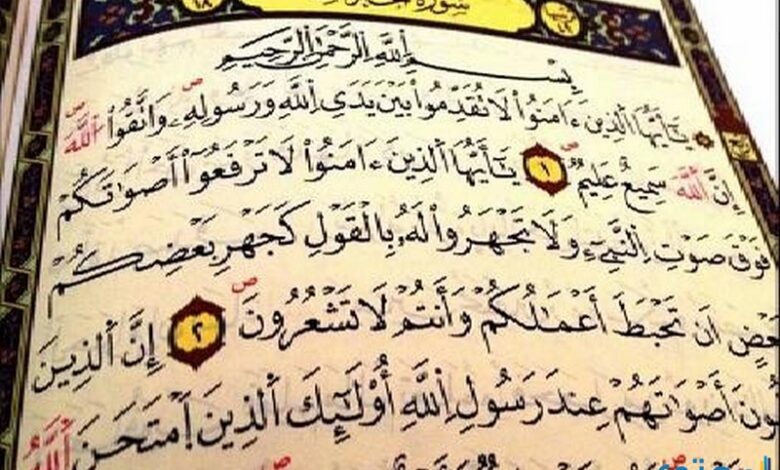 سُورَةُ
بِسْمِ اِللَّهِ اِلرَّحْمَٰنِ اِلرَّحِيمِ
يَٰٓأَيُّهَا اَلذِينَ ءَامَنُواْ لَا تُقَدِّمُواْ بَيْنَ يَدَيِ اِللَّهِ وَرَسُولِهِۦ وَاتَّقُواْ اُللَّهَ
إِنَّ اَللَّهَ سَمِيعٌ عَلِيمٌ ١ يَٰٓأَيُّهَا اَلذِينَ ءَامَنُواْ لَا تَرْفَعُوٓاْ أَصْوَٰتَكُمْ
فَوْقَ صَوْتِ اِلنَّبِيٓءِ وَلَا تَجْهَرُواْ لَهُۥ بِالْقَوْلِ كَجَهْرِ بَعْضِكُمْ
بَعْضٍ اَن تَحْبَطَ أَعْمَٰلُكُمْ وَأَنتُمْ لَا تَشْعُرُونَ ٢ إِنَّ اَلذِينَ
ونَ أَصْوَٰتَهُمْ عِندَ رَسُولِ اِللَّهِ أُوْلَٰٓئِكَ اَلذِينَ اَمْتَحَنَ اَللَّهُ